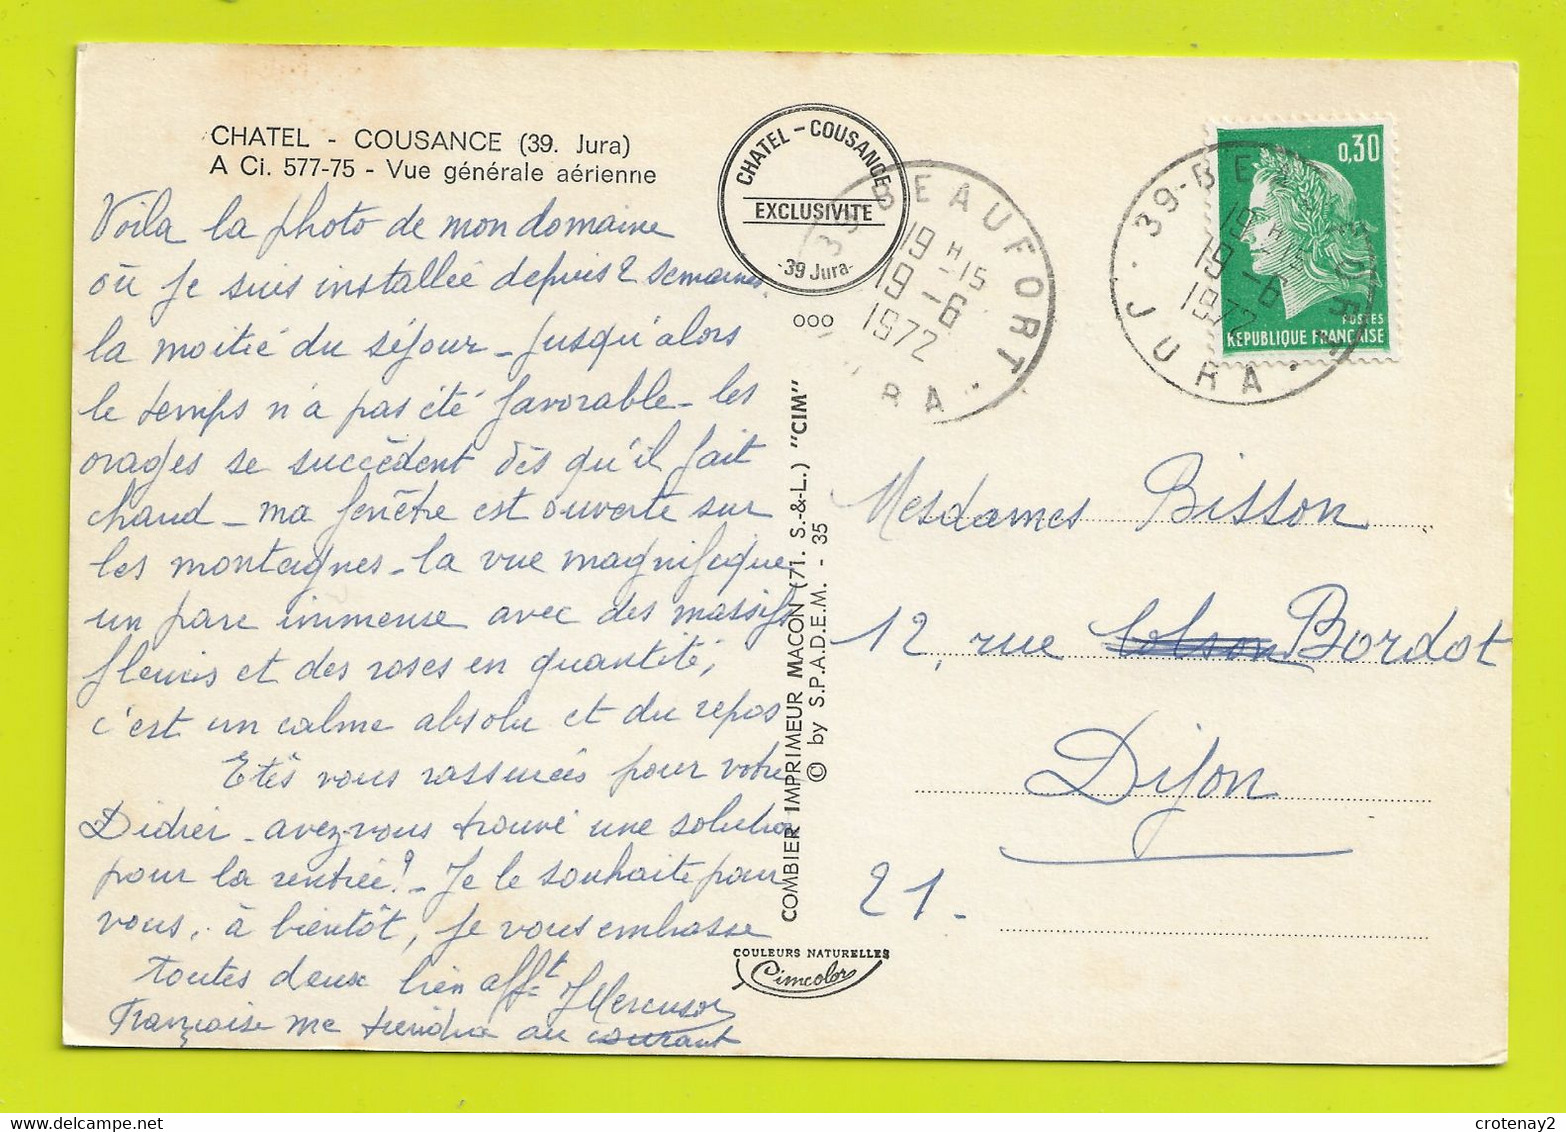 CHATEL - COUSANCE (39. Jura)
A Ci. 577-75 - Vue générale aérienne
Voila la photo de mon domaine
où je suis installée depuis 2 semaines.
la moitié du séjour - jusqu'alors
le temps n'a pas été favorable - les
orages se succèdent dès qu'il fait
chaud - ma fenêtre est ouverte sur
les montagnes - la vue magnifique
un parc immense avec des massifs
fleuris et des roses en quantité,
c'est un calme absolu et du repos
Etês vous rassurées pour votre
Didier - avez-vous trouvé une solution
pour la rentrée? - Je le souhaite pour
vous, à bientôt, je vous embrasse
toutes deux bien afft
Françoise me tiendra au courant
CHATEL - COUSANCE
EXCLUSIVITE
-39 Jura-
000
39 BEAUFORT
19 H 15
19 - 6
1972
RA
COMBIER IMPRIMEUR MACON (71. S.-&-L.) "CIM"
© by S.P.A.D.E.M. - 35
COULEURS NATURELLES
Cimcolor
39 - BEAUFORT
19 H 15
19 - 6
1972
JURA
0,30
POSTES
REPUBLIQUE FRANÇAISE
Mesdames Bisson
12, rue Bordot
Dijon
21 -
crotenay2